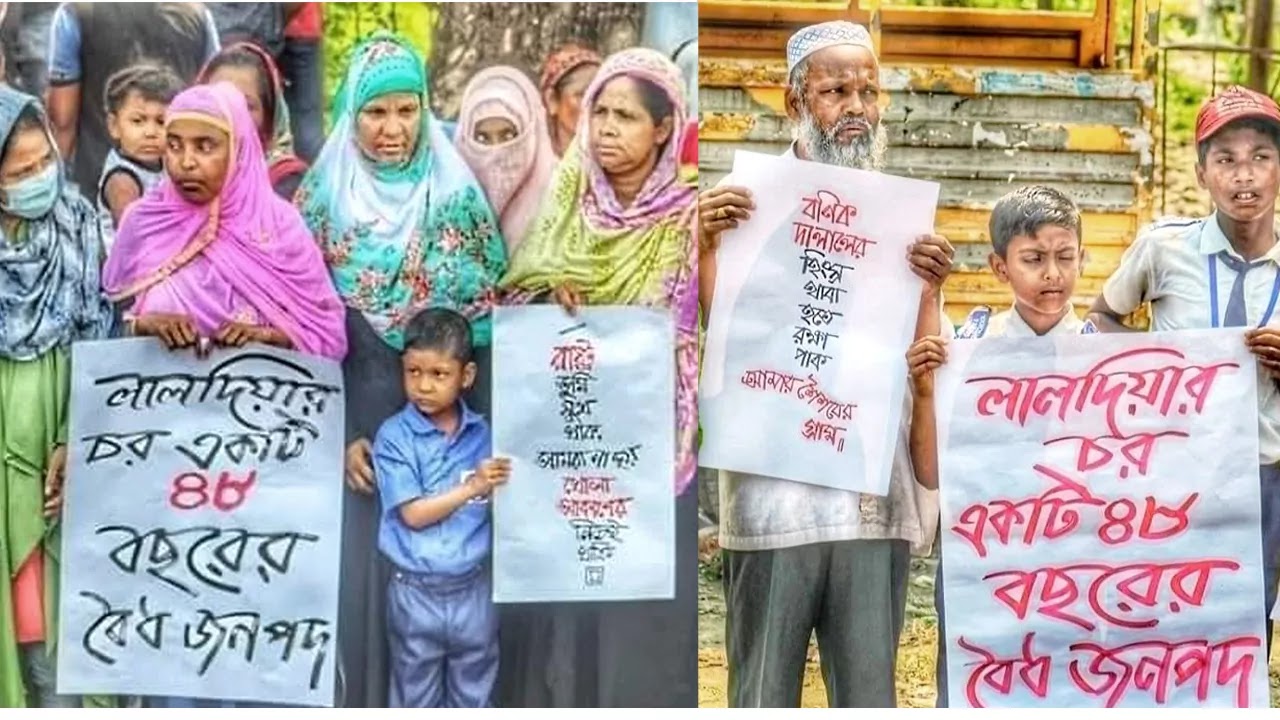 লালদিয়ার
চর একটি
৪৮
বছরের
বৈধ জনপদ
রাষ্ট্র
তুমি
সুখে
থাক,
আমরা না হয়
খোলা
আকাশের
নিচেই
থাকি
বণিক
দালালের
হিংস্র
থাবা
হতে
রক্ষা
পাক
আমার শৈশবের
গ্রাম॥
লালদিয়ার
চর
একটি ৪৮
বছরের
বৈধ জনপদ